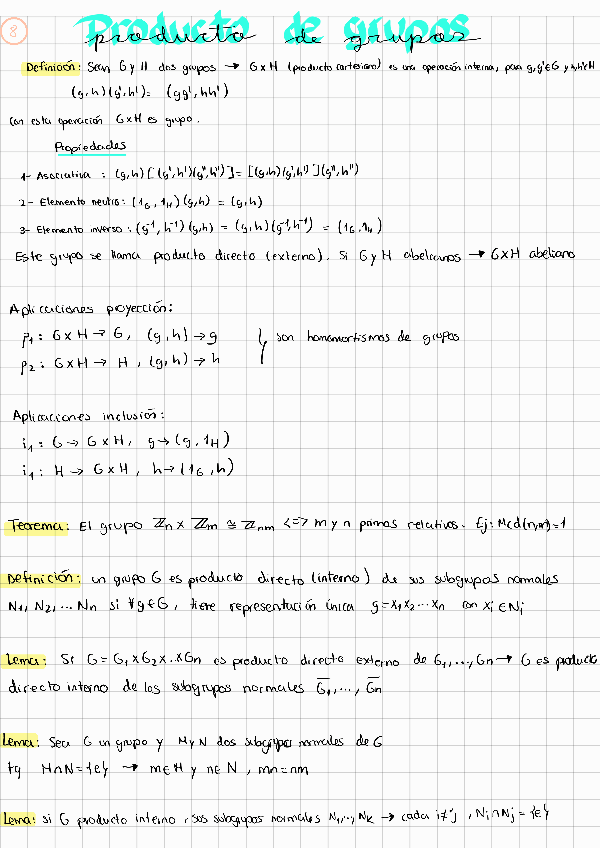 8
Producto de grupos
producto de grupos
Definición: Sean G y H dos grupos → G×H (producto cartesiano) es una operación interna, para g,g'∈G y h,h'∈H
(g,h)(g',h') = (gg',hh')
Con esta operación G×H es grupo.
Propiedades
1- Asociativa : (g,h)[(g',h')(g'',h'')] = [(g,h)(g',h')](g'',h'')
2- Elemento neutro: (1_G, 1_H)(g,h) = (g,h)
3- Elemento inverso: (g⁻¹, h⁻¹)(g,h) = (g,h)(g⁻¹,h⁻¹) = (1_G,1_H)
Este grupo se llama producto directo (externo). Si G y H abelianos → G×H abeliano
Aplicaciones proyección:
p₁ : G×H → G, (g,h) → g
} son homomorfismos de grupos
p₂ : G×H → H, (g,h) → h
Aplicaciones inclusión:
i₁ : G → G×H, g → (g, 1_H)
i₁ : H → G×H, h → (1_G, h)
Teorema: El grupo ℤn × ℤm ≅ ℤnm <=> m y n primos relativos. Ej: Mcd(n,m)=1
Definición: un grupo G es producto directo (interno) de sus subgrupos normales
N₁, N₂, ... Nn si ∀g∈G, tiene representación única g=x₁x₂...xn con xi ∈ Ni
Lema: Si G = G₁×G₂×..×Gn es producto directo externo de G₁,..., Gn → G es producto
directo interno de los subgrupos normales G̅₁,..., G̅n
Lema: Sea G un grupo y M y N dos subgrupos normales de G
tq M∩N={e} → m∈M y n∈N, mn=nm
Lema: si G producto interno, sus subgrupos normales N₁,.., Nk → cada i≠j, Ni∩Nj = {e}